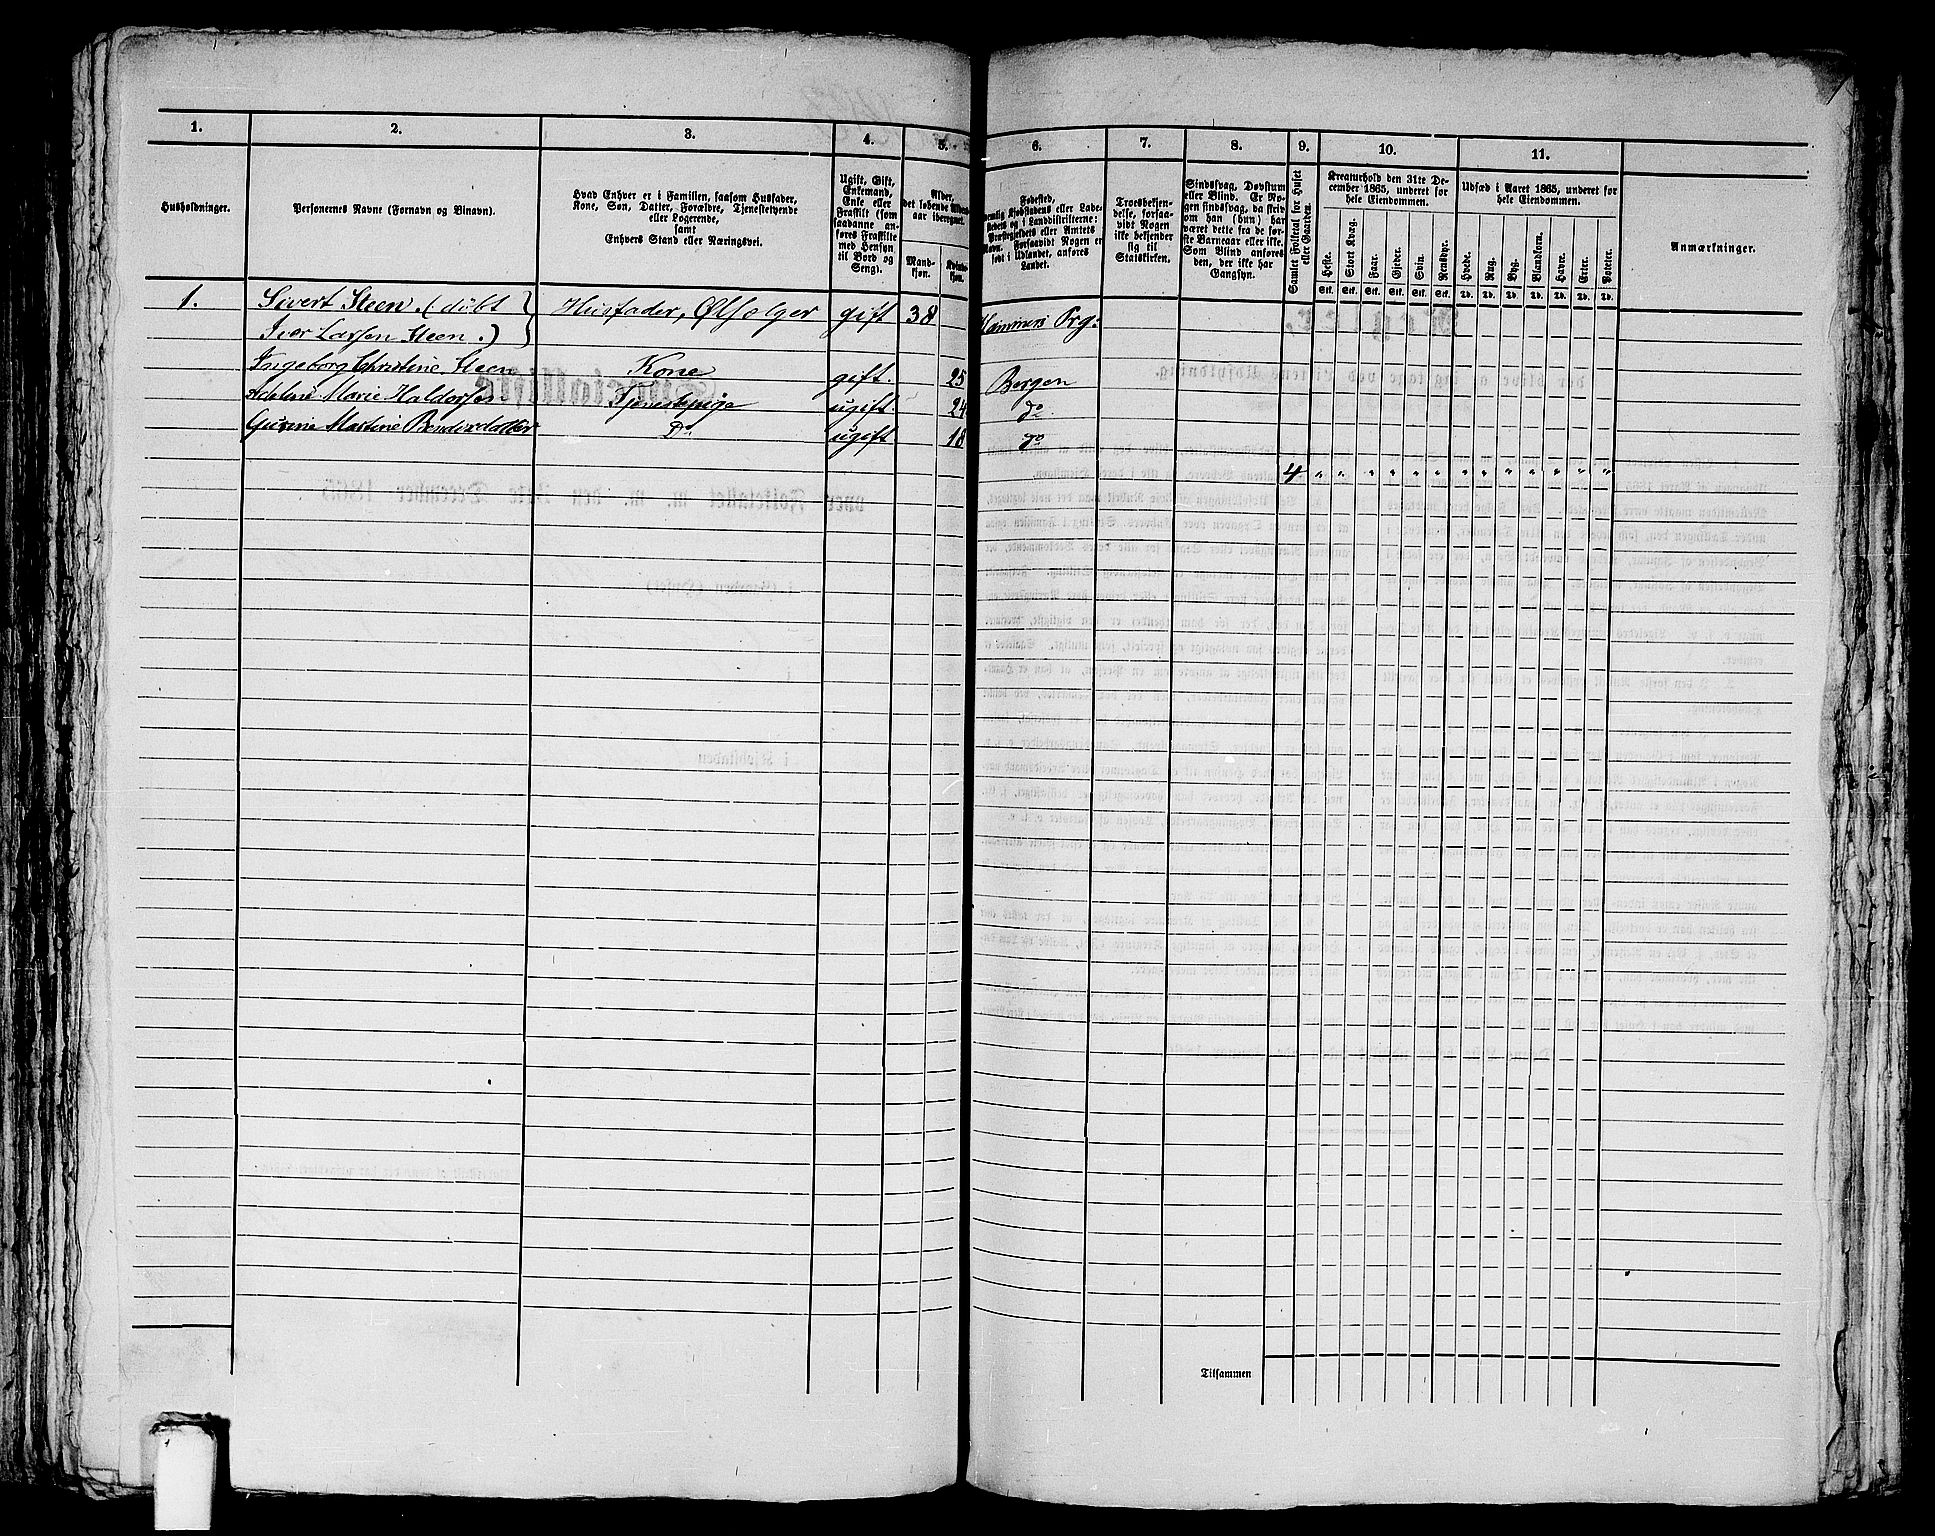 1. 2. 3. 4. 5. 6. 7. 8. 9. 10. 11.
Husholdninger.
Personernes Navne (Fornavn og Binavn).
Hvad Enhver er i Familien, saasom Husfader,
Kone, Søn, Datter, Forældre, Tjenestetyende
eller Logerende,
samt
Enhvers Stand eller Næringsvei.
Ugift, Gift,
Enkemand,
Enke eller
Fraskilt (som
saadanne an-
føres Fraskilte
med Hensyn
til Bord og
Seng).
Alder,
det løbende
aar iberegnet.
Mand-
kjøn.
Kvinde-
kjøn.
Fødested,
Kjøbstadens eller Lade-
stedets og i Landdistrikterne:
Præstegjeldets eller Amtets
Navn. Forsaavidt Nogen er
født i Udlandet, anføres
Landet.
Troesbekjen-
delse, forsaa-
vidt Nogen
ikke bekjender
sig til
Statskirken.
Sindssvag, Døvstum
eller Blind. Er No-
gen sindssvag, da skriv
om han (hun) har
været dette fra de før-
ste Barneaar eller ikke.
Som Blind anføres
den, der ikke har
Gangsyn.
Samlet Folketal for Huset
eller Gaarden.
Kreaturhold den 31te De-
cember 1865, underet for
hele Eiendommen.
Heste. Stort Kvæg. Faar. Gjeder. Svin. Rensdyr.
Stk. Stk. Stk. Stk. Stk. Stk.
Udsæd i Aaret 1865, underet for
hele Eiendommen.
Hvede. Rug. Byg. Blandkorn. Havre. Erter. Poteter.
Td. Td. Td. Td. Td. Td. Td.
Anmærkninger.
1. Sivert Steen (døbt Husfader, Ølsælger gift 38 Hammers Prg:
Iver Larsen Steen.)
Ingeborg Christine Steen Kone gift. 25 Bergen
Adeline Marie Haldorsen Tjenestepige ugift. 24 do
Martine Do ugift 18 do
4 " " " " " " " " " " " " "
Tilsammen